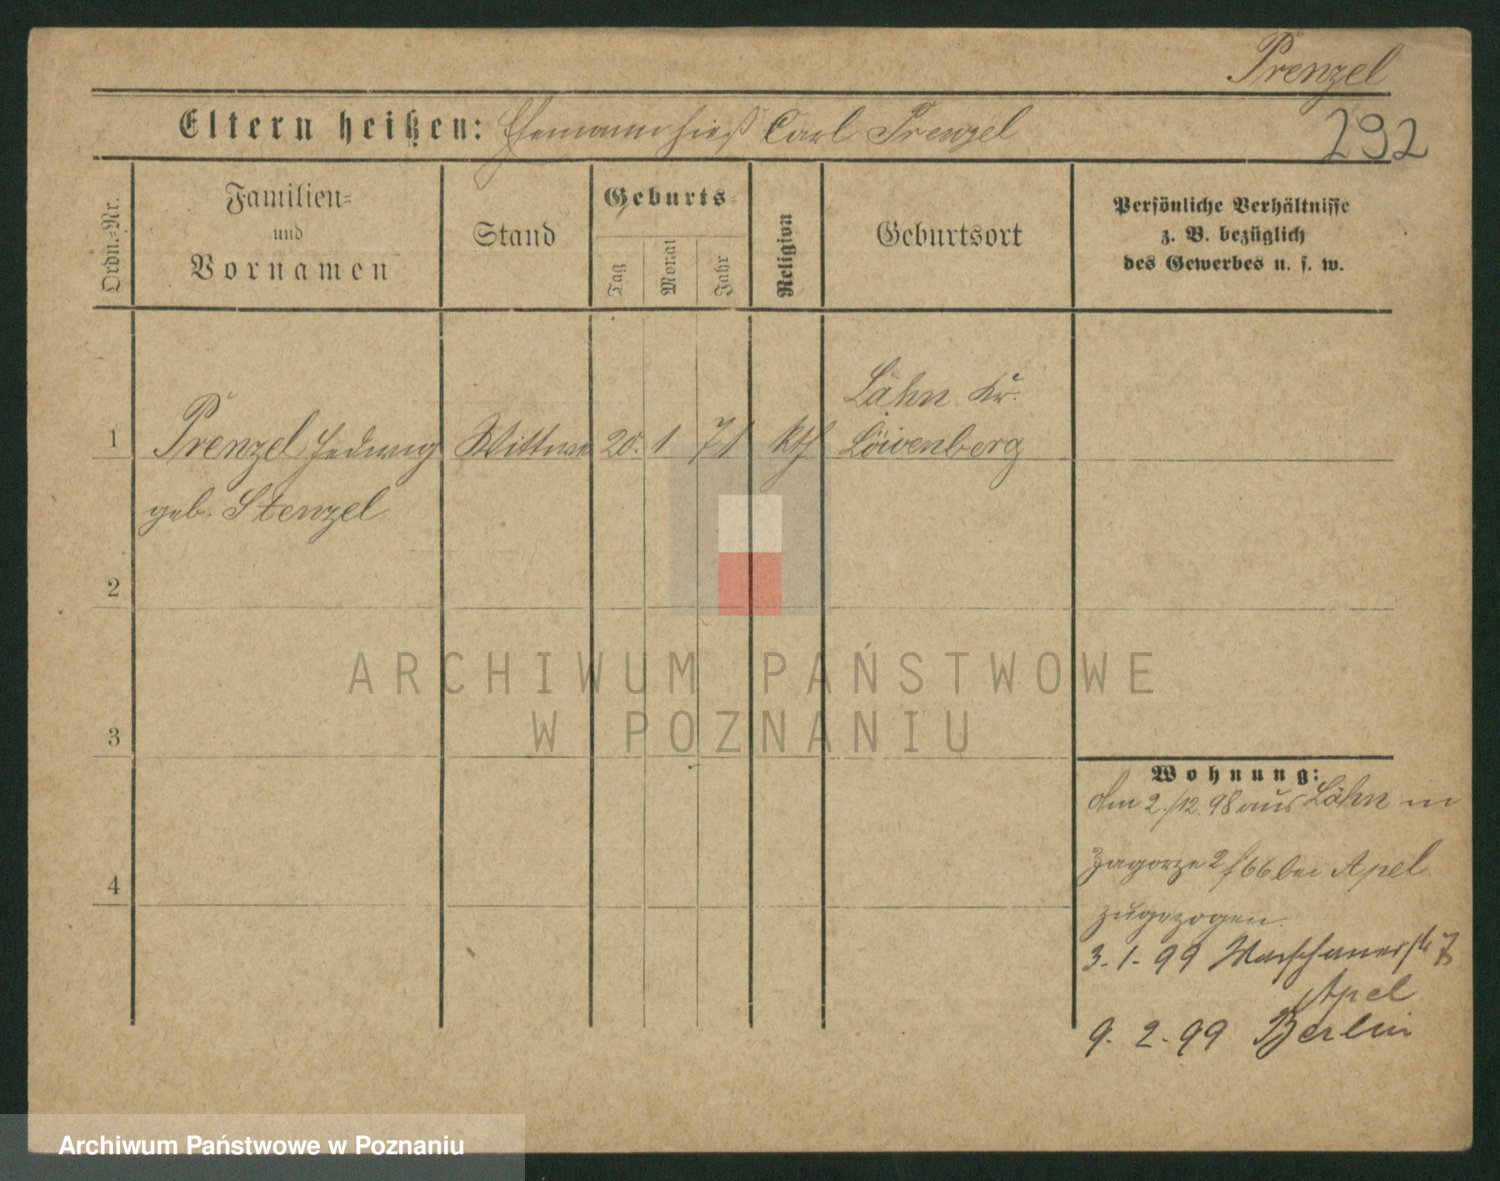 Prenzel
292
Eltern heißen: Ehemann hieß Carl Prenzel
Ordn.-Nr.
Familien-
und
Vornamen
Stand
Geburts-
Tag
Monat
Jahr
Religion
Geburtsort
Persönliche Verhältnisse
z. B. bezüglich
des Gewerbes u. s. w.
Lähn Kr.
1 Prenzel Hedwig Wittwe 20. 1 71 kth Löwenberg
geb. Stenzel
2
3
4
Wohnung:
Am 2./12. 98 aus Lähn in
Zagorze 2/66 bei Apel
zugezogen.
3. 1. 99 Warschauerstr 7
Apel
9. 2. 99 Berlin
ARCHIWUM PAŃSTWOWE
W POZNANIU
Archiwum Państwowe w Poznaniu